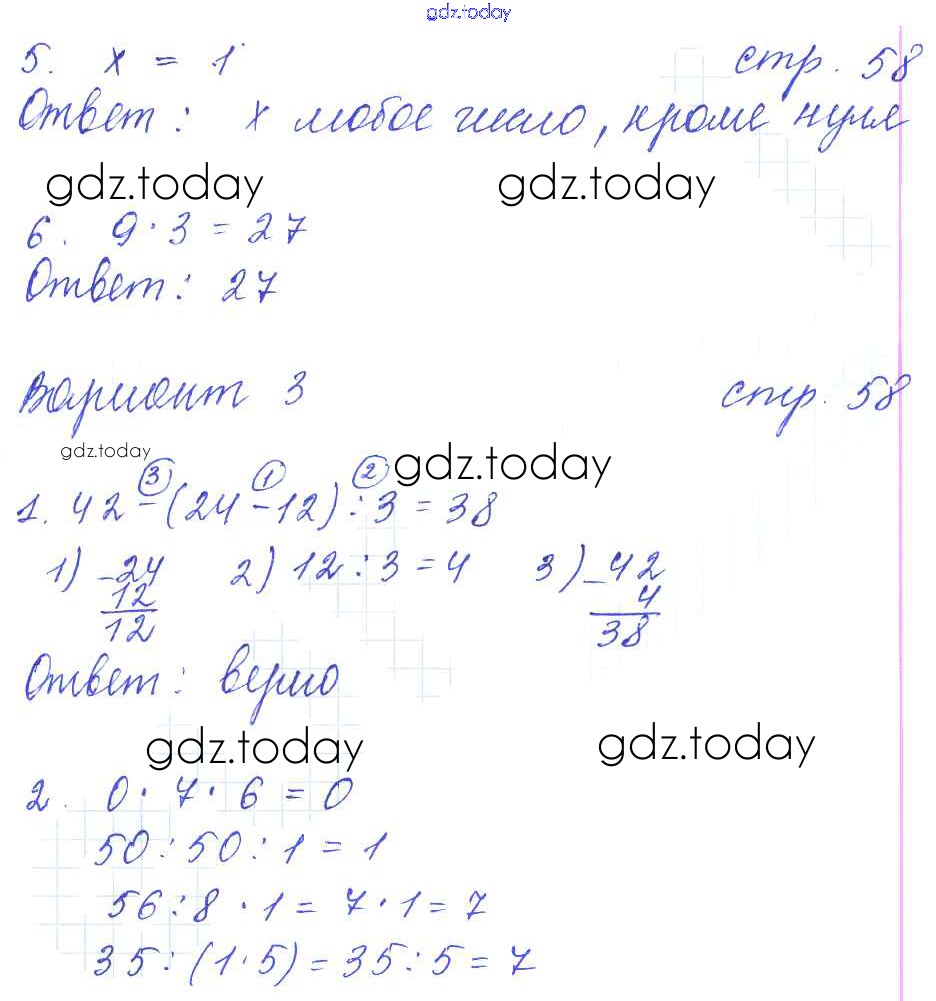 gdz.today
5. x = 1 стр. 58
Ответ: x любое число, кроме нуля
gdz.today gdz.today
6. 9·3=27
Ответ: 27
Вариант 3 стр. 58
gdz.today gdz.today
③ ① ②
1. 42-(24-12):3=38
1) -24 2) 12:3=4 3) -42
12 4
12 38
Ответ: верно
gdz.today gdz.today
2. 0·7·6=0
50:50:1=1
56:8·1=7·1=7
35:(1·5)=35:5=7